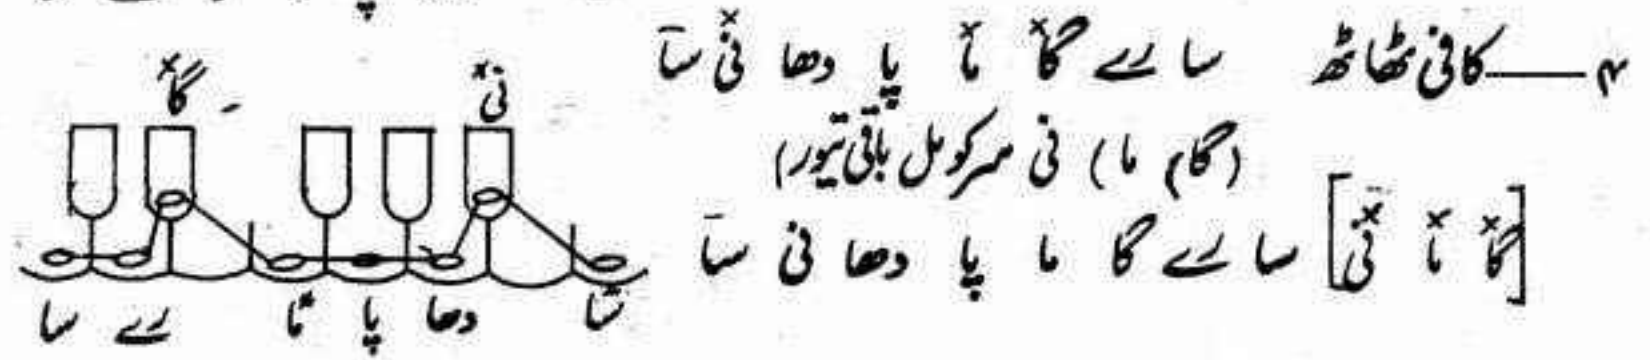 ۴ — کافی ٹھاٹھ سا رے گا× ما× پا دھا نی× سا
(گا، ما) نی سر کومل باقی تیور)
[گا× ما× نی×] سا رے گا ما پا دھا نی سا
گا× نی×
سا رے ما پا دھا سا